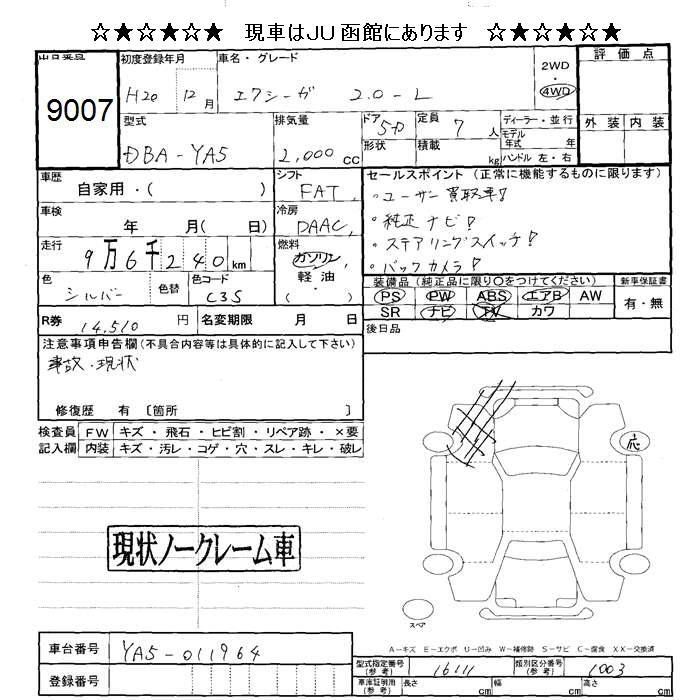 ☆★☆★☆★ 現車はJU函館にあります ☆★☆★☆★
出品番号
9007
初度登録年月
H20 12月
車名・グレード
エクシーガ 2.0-L
2WD
4WD
評価点
外装 内装
型式
DBA-YA5
排気量
2,000cc
ドア 5D
形状
定員 7人
積載 kg
ディーラー・並行
モデル年式 年
ハンドル 左・右
車歴
自家用・( )
シフト
FAT
セールスポイント (正常に機能するものに限ります)
・ユーザー買取車!
・純正ナビ!
・ステアリングスイッチ!
・バックカメラ!
車検
年 月( 日)
冷房
DAAC
走行
9万6千240km
燃料
ガソリン
軽油
( )
色
シルバー
色替
色コード
C3S
装備品(純正品に限り〇をつけてください)
PS PW ABS エアB AW
SR ナビ TV カワ
新車保証書
有・無
R券 14,510円
名変期限 月 日
後日品
注意事項申告欄(不具合内容等は具体的に記入して下さい)
事故・現状
修復歴 有 〔箇所 〕
検査員記入欄
FW キズ・飛石・ヒビ割・リペア跡・×要
内装 キズ・汚レ・コゲ・穴・スレ・キレ・破レ
応
現状ノークレーム車
スペア
A-キズ E-エクボ U-凹み W-補修跡 S-サビ C-腐食 XX-交換済
車台番号 YA5-011964
登録番号
型式指定番号(参考) 16111
類別区分番号(参考) 1003
車庫証明用(参考) 長さ cm 幅 cm 高さ cm